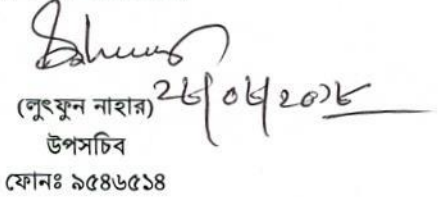 (লুৎফুন নাহার) ২৮/০৮/২০১৮
উপসচিব
ফোনঃ ৯৫৪৬৫১৪